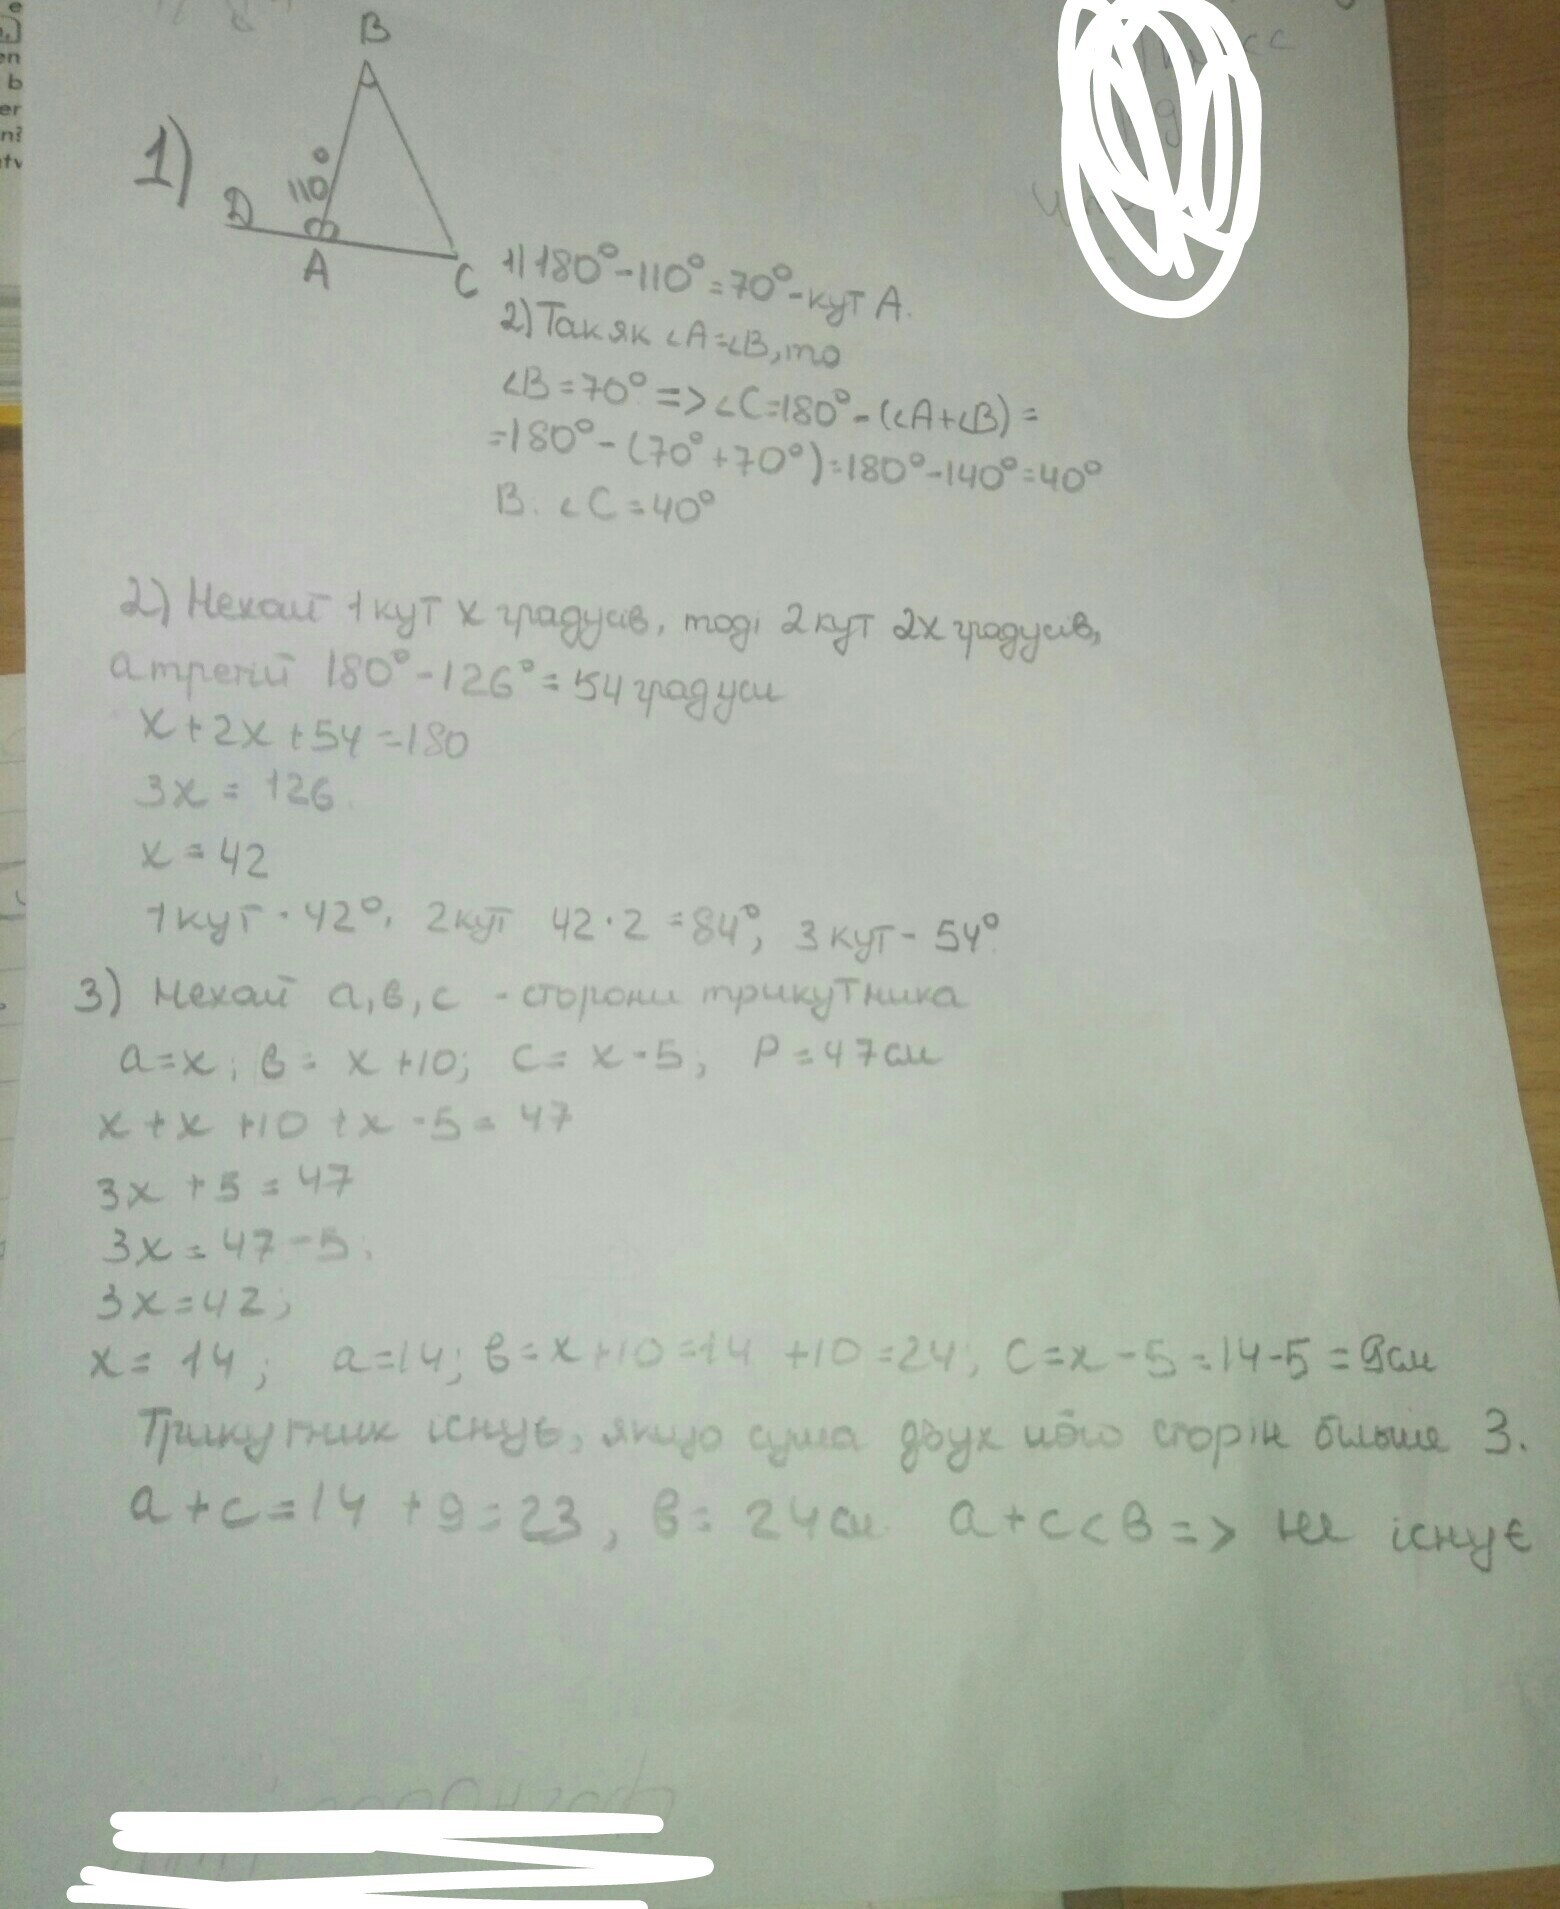 B
1)
110°
D
A
C
1) 180°-110°=70°-кут A.
2) Так як ∠A=∠B, то
∠B=70° => ∠C=180°-(∠A+∠B)=
=180°-(70°+70°)=180°-140°=40°
В. ∠C=40°
2) Нехай 1 кут x градусів, тоді 2 кут 2x градусів,
а третій 180°-126°=54 градуси
x+2x+54=180
3x=126
x=42
1 кут - 42°, 2 кут 42·2=84°, 3 кут - 54°.
3) Нехай a, в, c - сторони трикутника
a=x; в= x+10; c= x-5; P=47см
x+x+10+x-5=47
3x+5=47
3x=47-5;
3x=42;
x=14; a=14; в=x+10=14+10=24; c=x-5=14-5=9см
Трикутник існує, якщо сума двух його сторін більше 3.
a+c=14+9=23, в=24см a+c<в => не існує